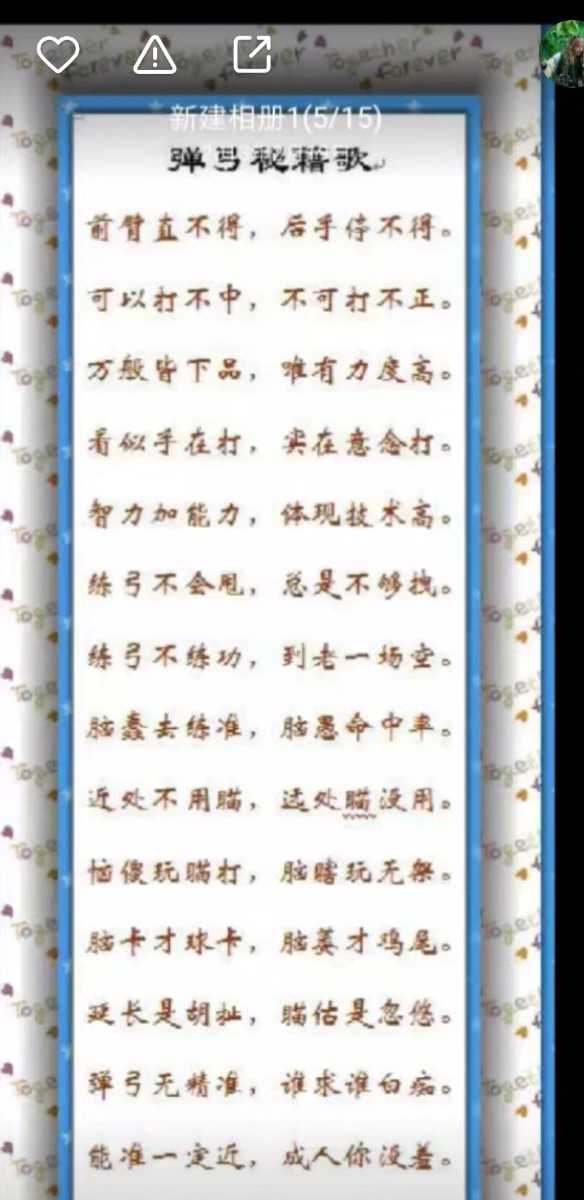 Together Forever
新建相册1(5/15)
弹弓秘籍歌
前臂直不得，后手停不得。
可以打不中，不可打不正。
万般皆下品，唯有力度高。
看似手在打，实在意念打。
智力加能力，体现技术高。
练弓不会甩，总是不够拽。
练弓不练功，到老一场空。
脑蠢去练准，脑愚命中率。
近处不用瞄，远处瞄没用。
恼傻玩瞄打，脑瞎玩无架。
脑卡才球卡，脑萎才鸡尾。
延长是胡扯，瞄估是忽悠。
弹弓无精准，谁求谁白痴。
能准一定近，成人你没羞。